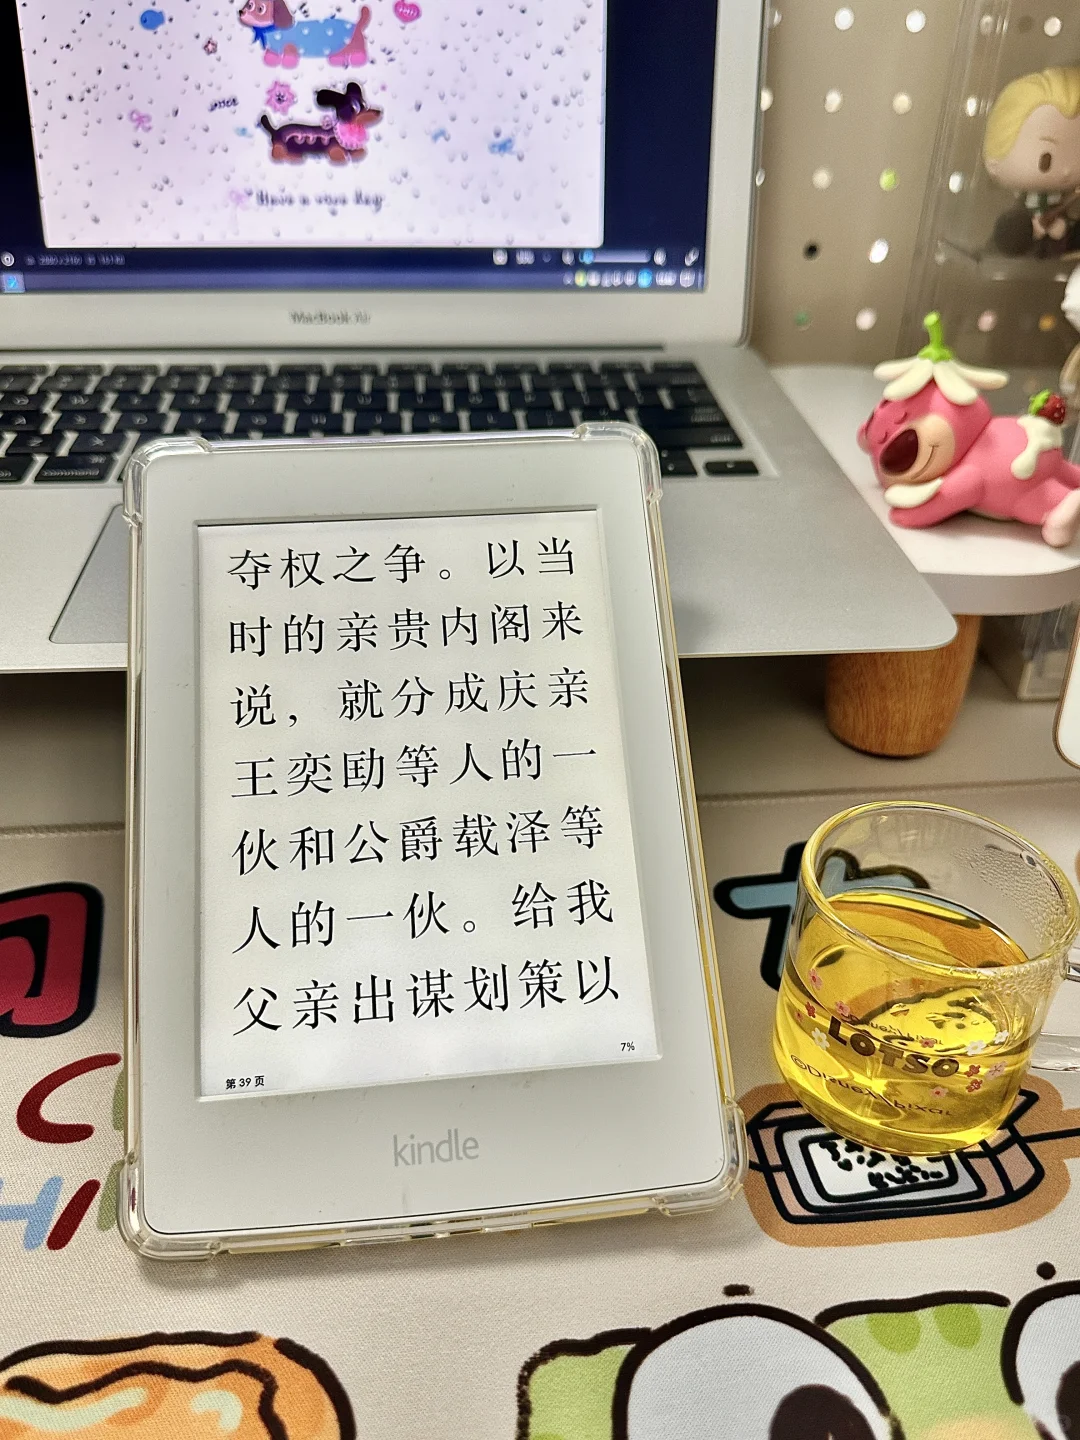 Have a nice day
MacBook Air
command
夺权之争。以当
时的亲贵内阁来
说，就分成庆亲
王奕劻等人的一
伙和公爵载泽等
人的一伙。给我
父亲出谋划策以
7%
第 39 页
kindle
LOTSO
©Disney/Pixar